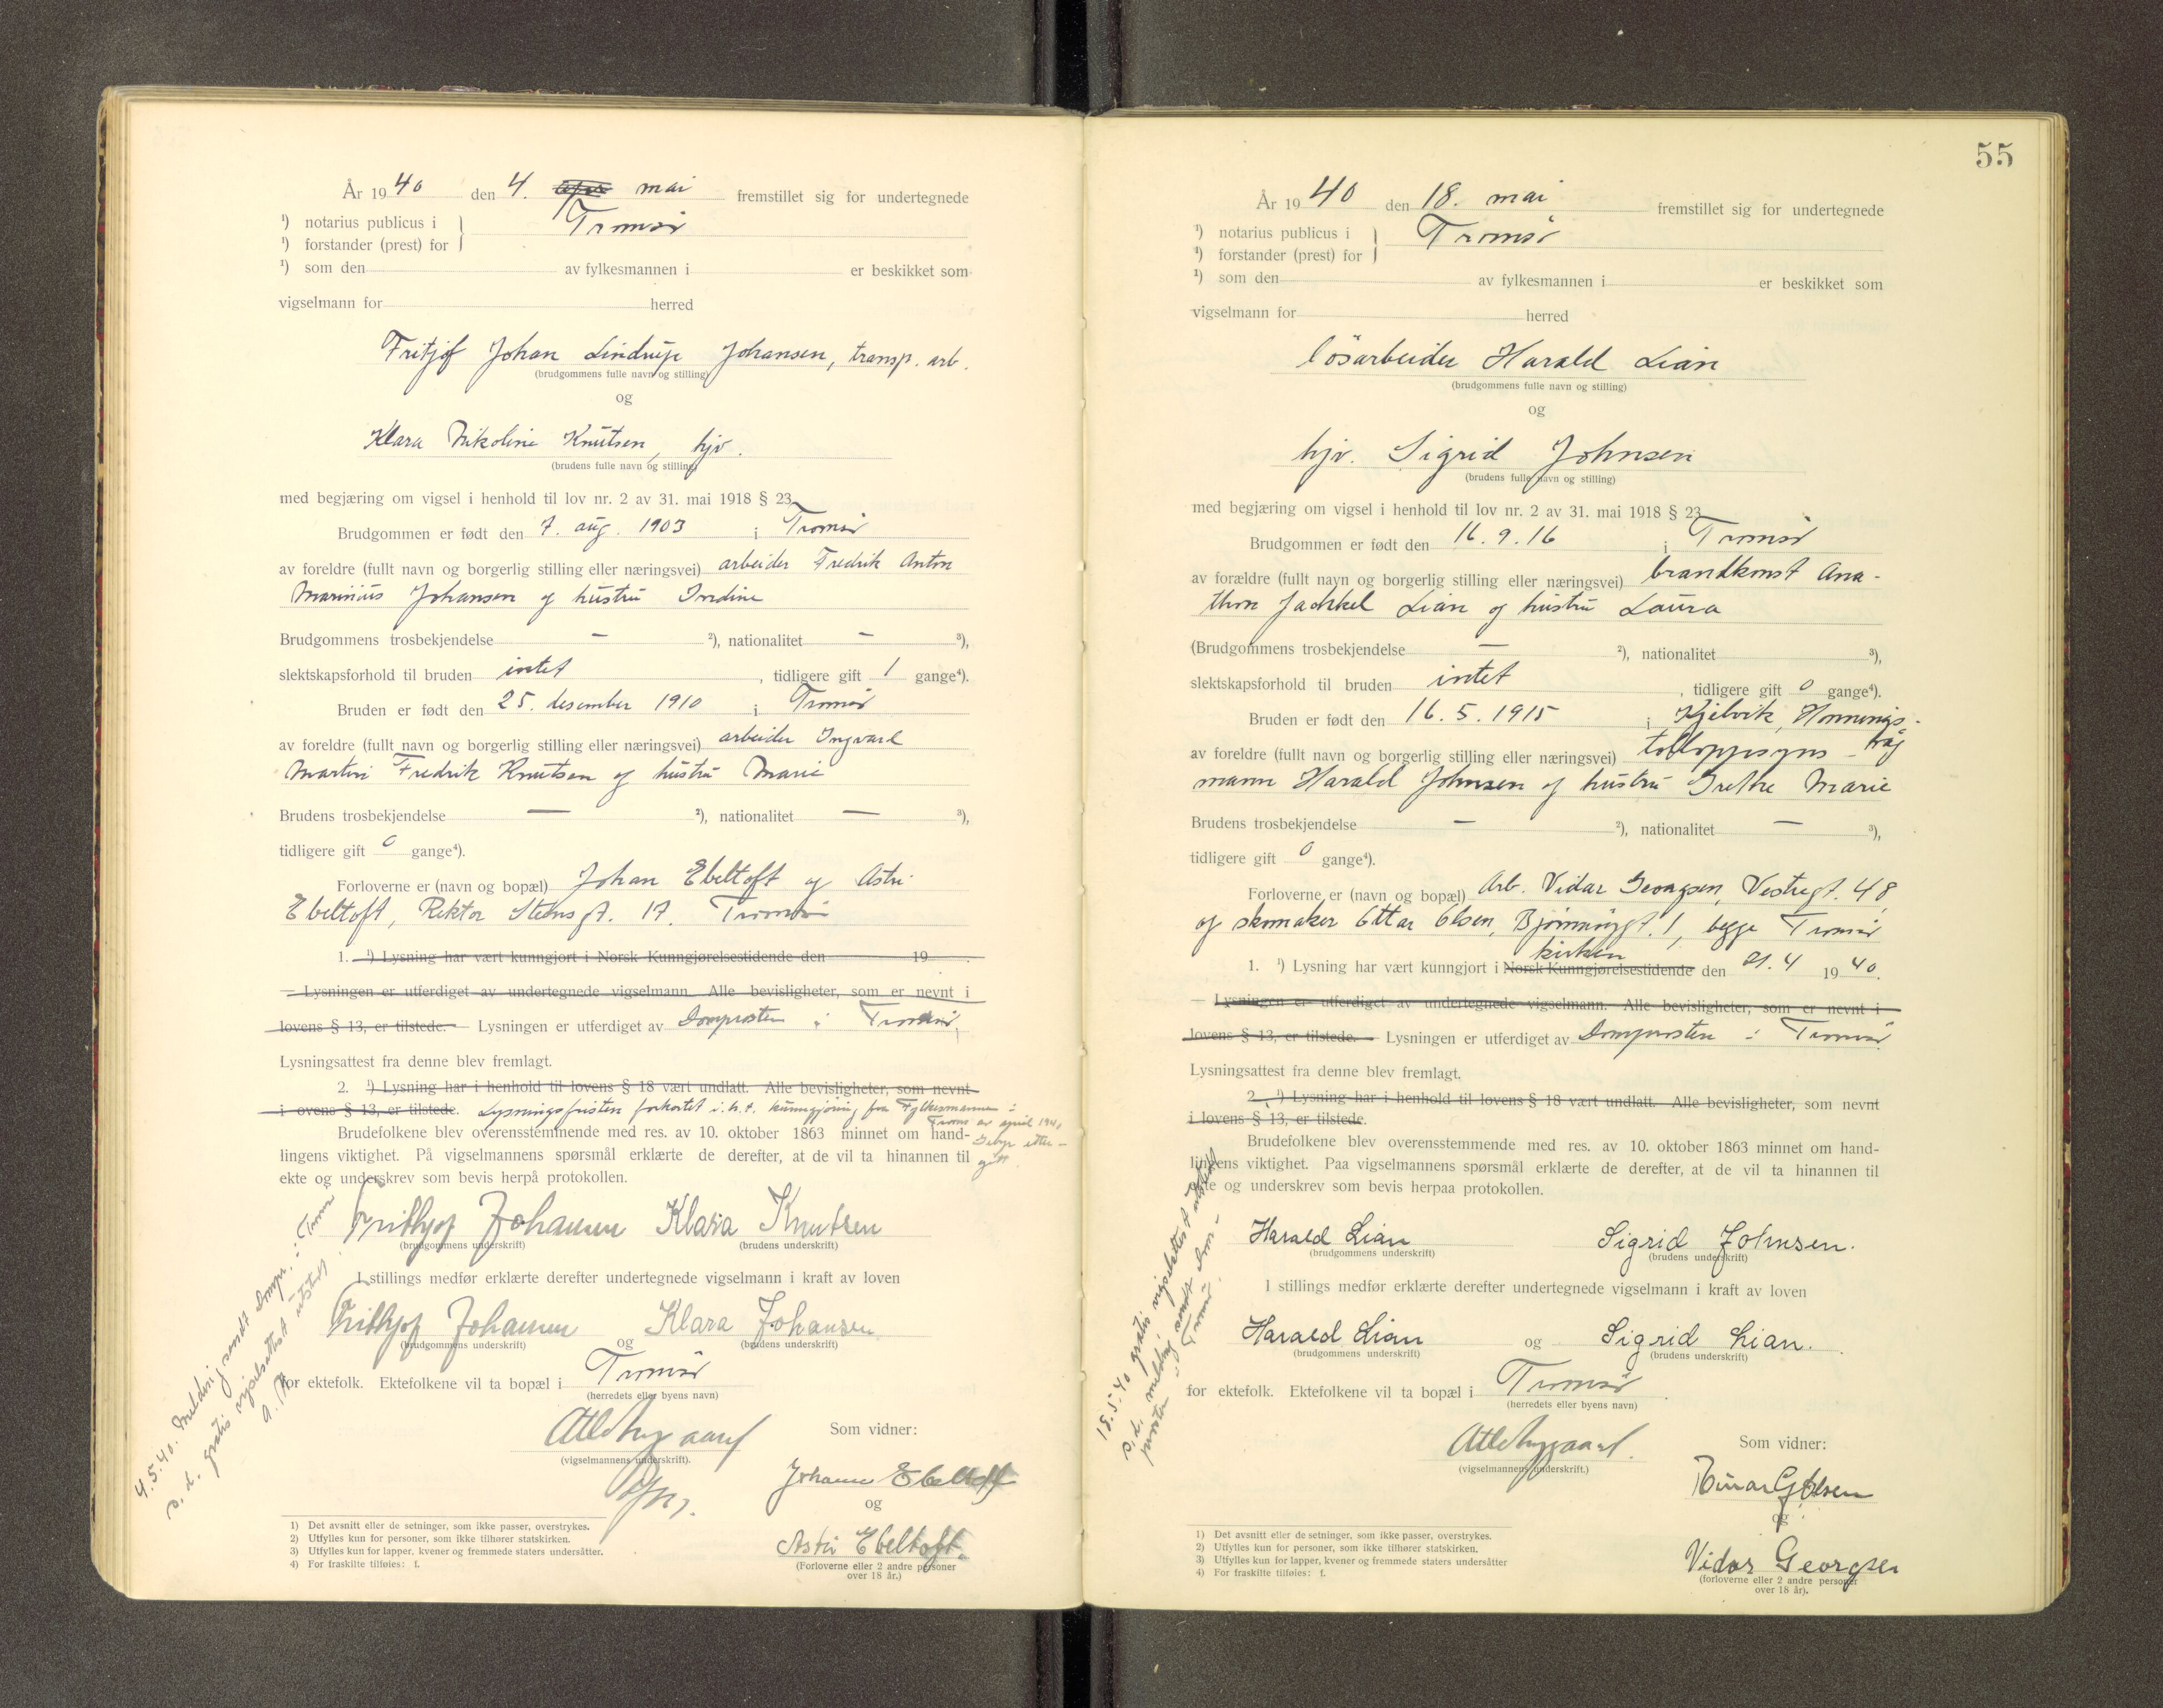 År 1940 den 4. apr mai fremstillet sig for undertegnede
¹) notarius publicus i } Tromsø
¹) forstander (prest) for
¹) som den av fylkesmannen i er beskikket som
vigselmann for herred
Fritjof Johan Lindrup Johansen, transp. arb.
(brudgommens fulle navn og stilling)
og
Klara Nikoline Knutsen, hjv.
(brudens fulle navn og stilling)
med begjæring om vigsel i henhold til lov nr. 2 av 31. mai 1918 § 23
Brudgommen er født den 7. aug. 1903 i Tromsø
av foreldre (fullt navn og borgerlig stilling eller næringsvei) arbeider Fredrik Anton
Marinius Johansen og hustru Indine
Brudgommens trosbekjendelse — ²), nationalitet — ³),
slektskapsforhold til bruden intet, tidligere gift 1 gange⁴).
Bruden er født den 25. desember 1910 i Tromsø
av foreldre (fullt navn og borgerlig stilling eller næringsvei) arbeider Ingvard
Martin Fredrik Knutsen og hustru Marie
Brudens trosbekjendelse — ²), nationalitet — ³),
tidligere gift 0 gange⁴).
Forloverne er (navn og bopæl) Johan Ebeltoft og Astri
Ebeltoft, Rektor Steensgt. 17. Tromsø
1. ¹) Lysning har vært kunngjort i Norsk Kunngjørelsestidende den 19 .
— Lysningen er utferdiget av undertegnede vigselmann. Alle bevisligheter, som er nevnt i
lovens § 13, er tilstede. — Lysningen er utferdiget av Domprosten i Tromsø,
Lysningsattest fra denne blev fremlagt.
2. ¹) Lysning har i henhold til lovens § 18 vært undlatt. Alle bevisligheter, som nevnt
i ovens § 13, er tilstede. Lysningsfristen forkortet i.h.t. kunngjøring fra Fylkesmannen i
Troms av april 1940
Gebyr etter-
gitt.
Brudefolkene blev overensstemmende med res. av 10. oktober 1863 minnet om hand-
lingens viktighet. På vigselmannens spørsmål erklærte de derefter, at de vil ta hinannen til
ekte og underskrev som bevis herpå protokollen.
Frithjof Johansen Klara Knutsen
(brudgommens underskrift) (brudens underskrift)
I stillings medfør erklærte derefter undertegnede vigselmann i kraft av loven
Frithjof Johansen og Klara Johansen
(brudgommens underskrift) (brudens underskrift)
for ektefolk. Ektefolkene vil ta bopæl i Tromsø
(herredets eller byens navn)
Som vidner:
(vigselmannens underskrift).
Johan Ebeltoft
og
Astri Ebeltoft.
(Forloverne eller 2 andre personer
over 18 år.)
4.5.40. Melding sendt Dompr. i Tromsø
s.d. gratis vigselsattest utstedt
1) Det avsnitt eller de setninger, som ikke passer, overstrykes.
2) Utfylles kun for personer, som ikke tilhører statskirken.
3) Utfylles kun for lapper, kvener og fremmede staters undersåtter.
4) For fraskilte tilføies: f.
55
År 1940 den 18. mai fremstillet sig for undertegnede
¹) notarius publicus i } Tromsø
¹) forstander (prest) for
¹) som den av fylkesmannen i er beskikket som
vigselmann for herred
løsarbeider Harald Lian
(brudgommens fulle navn og stilling)
og
hjv. Sigrid Johnsen
(brudens fulle navn og stilling)
med begjæring om vigsel i henhold til lov nr. 2 av 31. mai 1918 § 23
Brudgommen er født den 16.9.16 i Tromsø
av forældre (fullt navn og borgerlig stilling eller næringsvei) brandkonst Ana-
thon Jachkel Lian og hustru Laura
(Brudgommens trosbekjendelse — ²), nationalitet ³),
slektskapsforhold til bruden intet, tidligere gift 0 gange⁴).
Bruden er født den 16.5.1915 i Kjelvik, Honnings-
våg
av foreldre (fullt navn og borgerlig stilling eller næringsvei) tolloppsyns-
mann Harald Johnsen og hustru Grethe Marie
Brudens trosbekjendelse — ²), nationalitet — ³),
tidligere gift 0 gange⁴).
Forloverne er (navn og bopæl) Arb. Vidar Georgsen, Vestregt. 48,
og skomaker Ottar Olsen, Bjørnøygt. 1, begge Tromsø
kirken
1. ¹) Lysning har vært kunngjort i Norsk Kunngjørelsestidende den 21.4 1940.
— Lysningen er utferdiget av undertegnede vigselmann. Alle bevisligheter, som er nevnt i
lovens § 13, er tilstede. — Lysningen er utferdiget av Domprosten i Tromsø
Lysningsattest fra denne blev fremlagt.
2. ¹) Lysning har i henhold til lovens § 18 vært undlatt. Alle bevisligheter, som nevnt
i lovens § 13, er tilstede.
Brudefolkene blev overensstemmende med res. av 10. oktober 1863 minnet om hand-
lingens viktighet. Paa vigselmannens spørsmål erklærte de derefter, at de vil ta hinannen til
ekte og underskrev som bevis herpaa protokollen.
Harald Lian Sigrid Johnsen.
(brudgommens underskrift) (brudens underskrift)
I stillings medfør erklærte derefter undertegnede vigselmann i kraft av loven
Harald Lian og Sigrid Lian.
(brudgommens underskrift) (brudens underskrift)
for ektefolk. Ektefolkene vil ta bopæl i Tromsø.
(herredets eller byens navn)
Som vidner:
(vigselmannens underskrift.)
og
Vidar Georgsen
(forloverne eller 2 andre personer
over 18 år).
18.5.40 gratis vigselattest utstedt
s.d. melding sendt Dom-
prosten i Tromsø.
1) Det avsnitt eller de setninger, som ikke passer, overstrykes.
2) Utfylles kun for personer, som ikke tilhører statskirken.
3) Utfylles kun for lapper, kvener og fremmede staters undersåtter
4) For fraskilte tilføies: f.